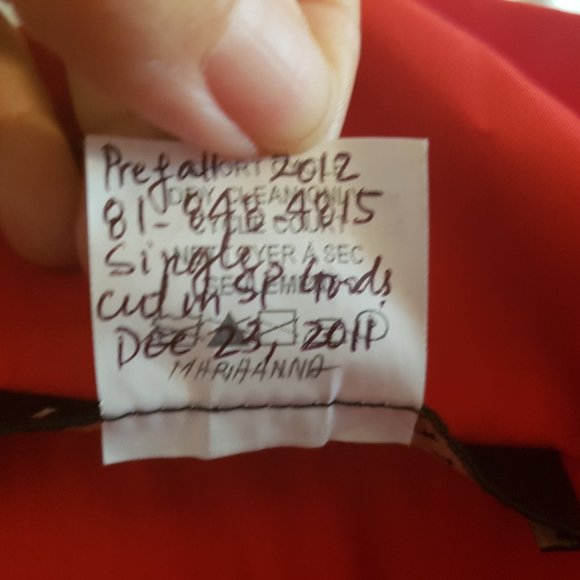 Prefall 2012
DRY CLEAN ONLY
81-848-4815
CYCLE COURT
Single
NETTOYER A SEC
SEULEMENT
Cut in SP Goods
Dec 23, 2011
MARIHANNA